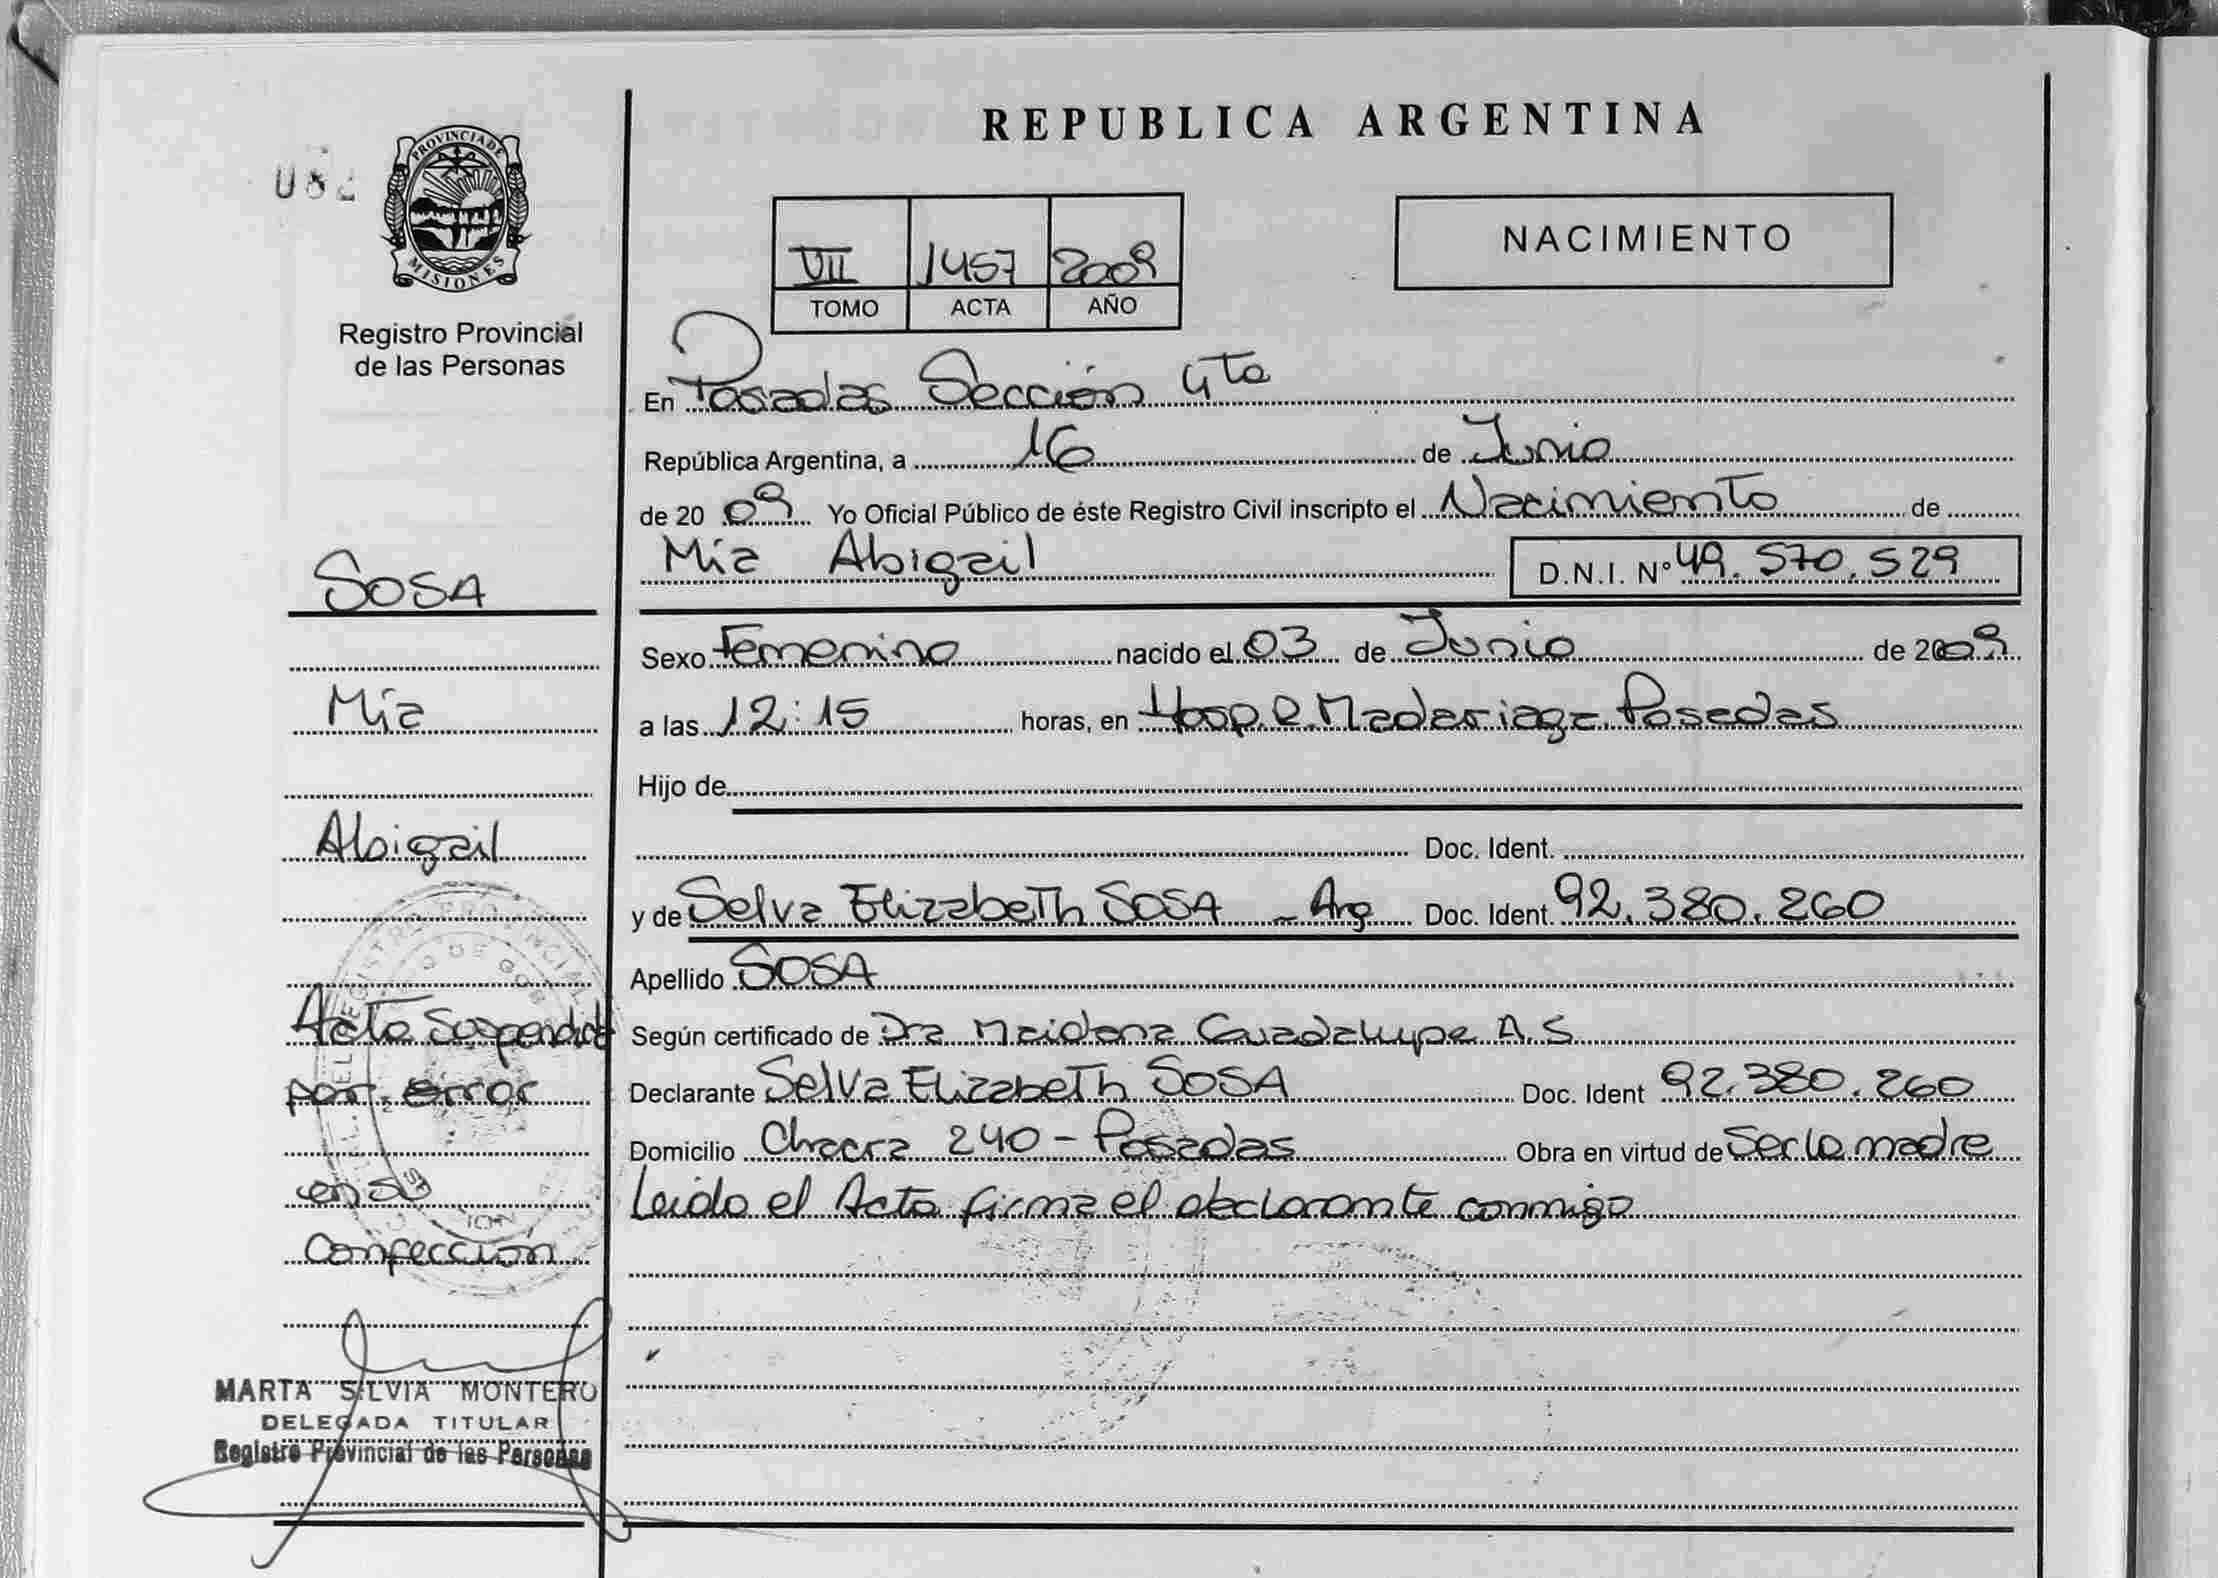 REPUBLICA ARGENTINA
PROVINCIA DE
MISIONES
Registro Provincial
de las Personas
VII 1457 2009
TOMO ACTA AÑO
NACIMIENTO
En Posadas Sección 4ta
República Argentina, a 16 de Junio
de 20 09 Yo Oficial Público de éste Registro Civil inscripto el Nacimiento de
Mia Abigail D.N.I. Nº 49.570.529
SOSA
Sexo Femenino nacido el 03 de Junio de 2009
Mia
a las 12:15 horas, en Hosp. R. Madariaga - Posadas
Hijo de
Abigail
Doc. Ident.
y de Selva Elizabeth SOSA - Arg Doc. Ident 92.380.260
Apellido SOSA
Acta Suspendida
Según certificado de Dra Maidana Guadalupe A. S
por error
Declarante Selva Elizabeth SOSA Doc. Ident 92.380.260
Domicilio Chacra 240 - Posadas Obra en virtud de Ser la madre
en su
Leido el Acta firma el declarante conmigo
Confección
MARTA SILVIA MONTERO
DELEGADA TITULAR
Registro Provincial de las Personas